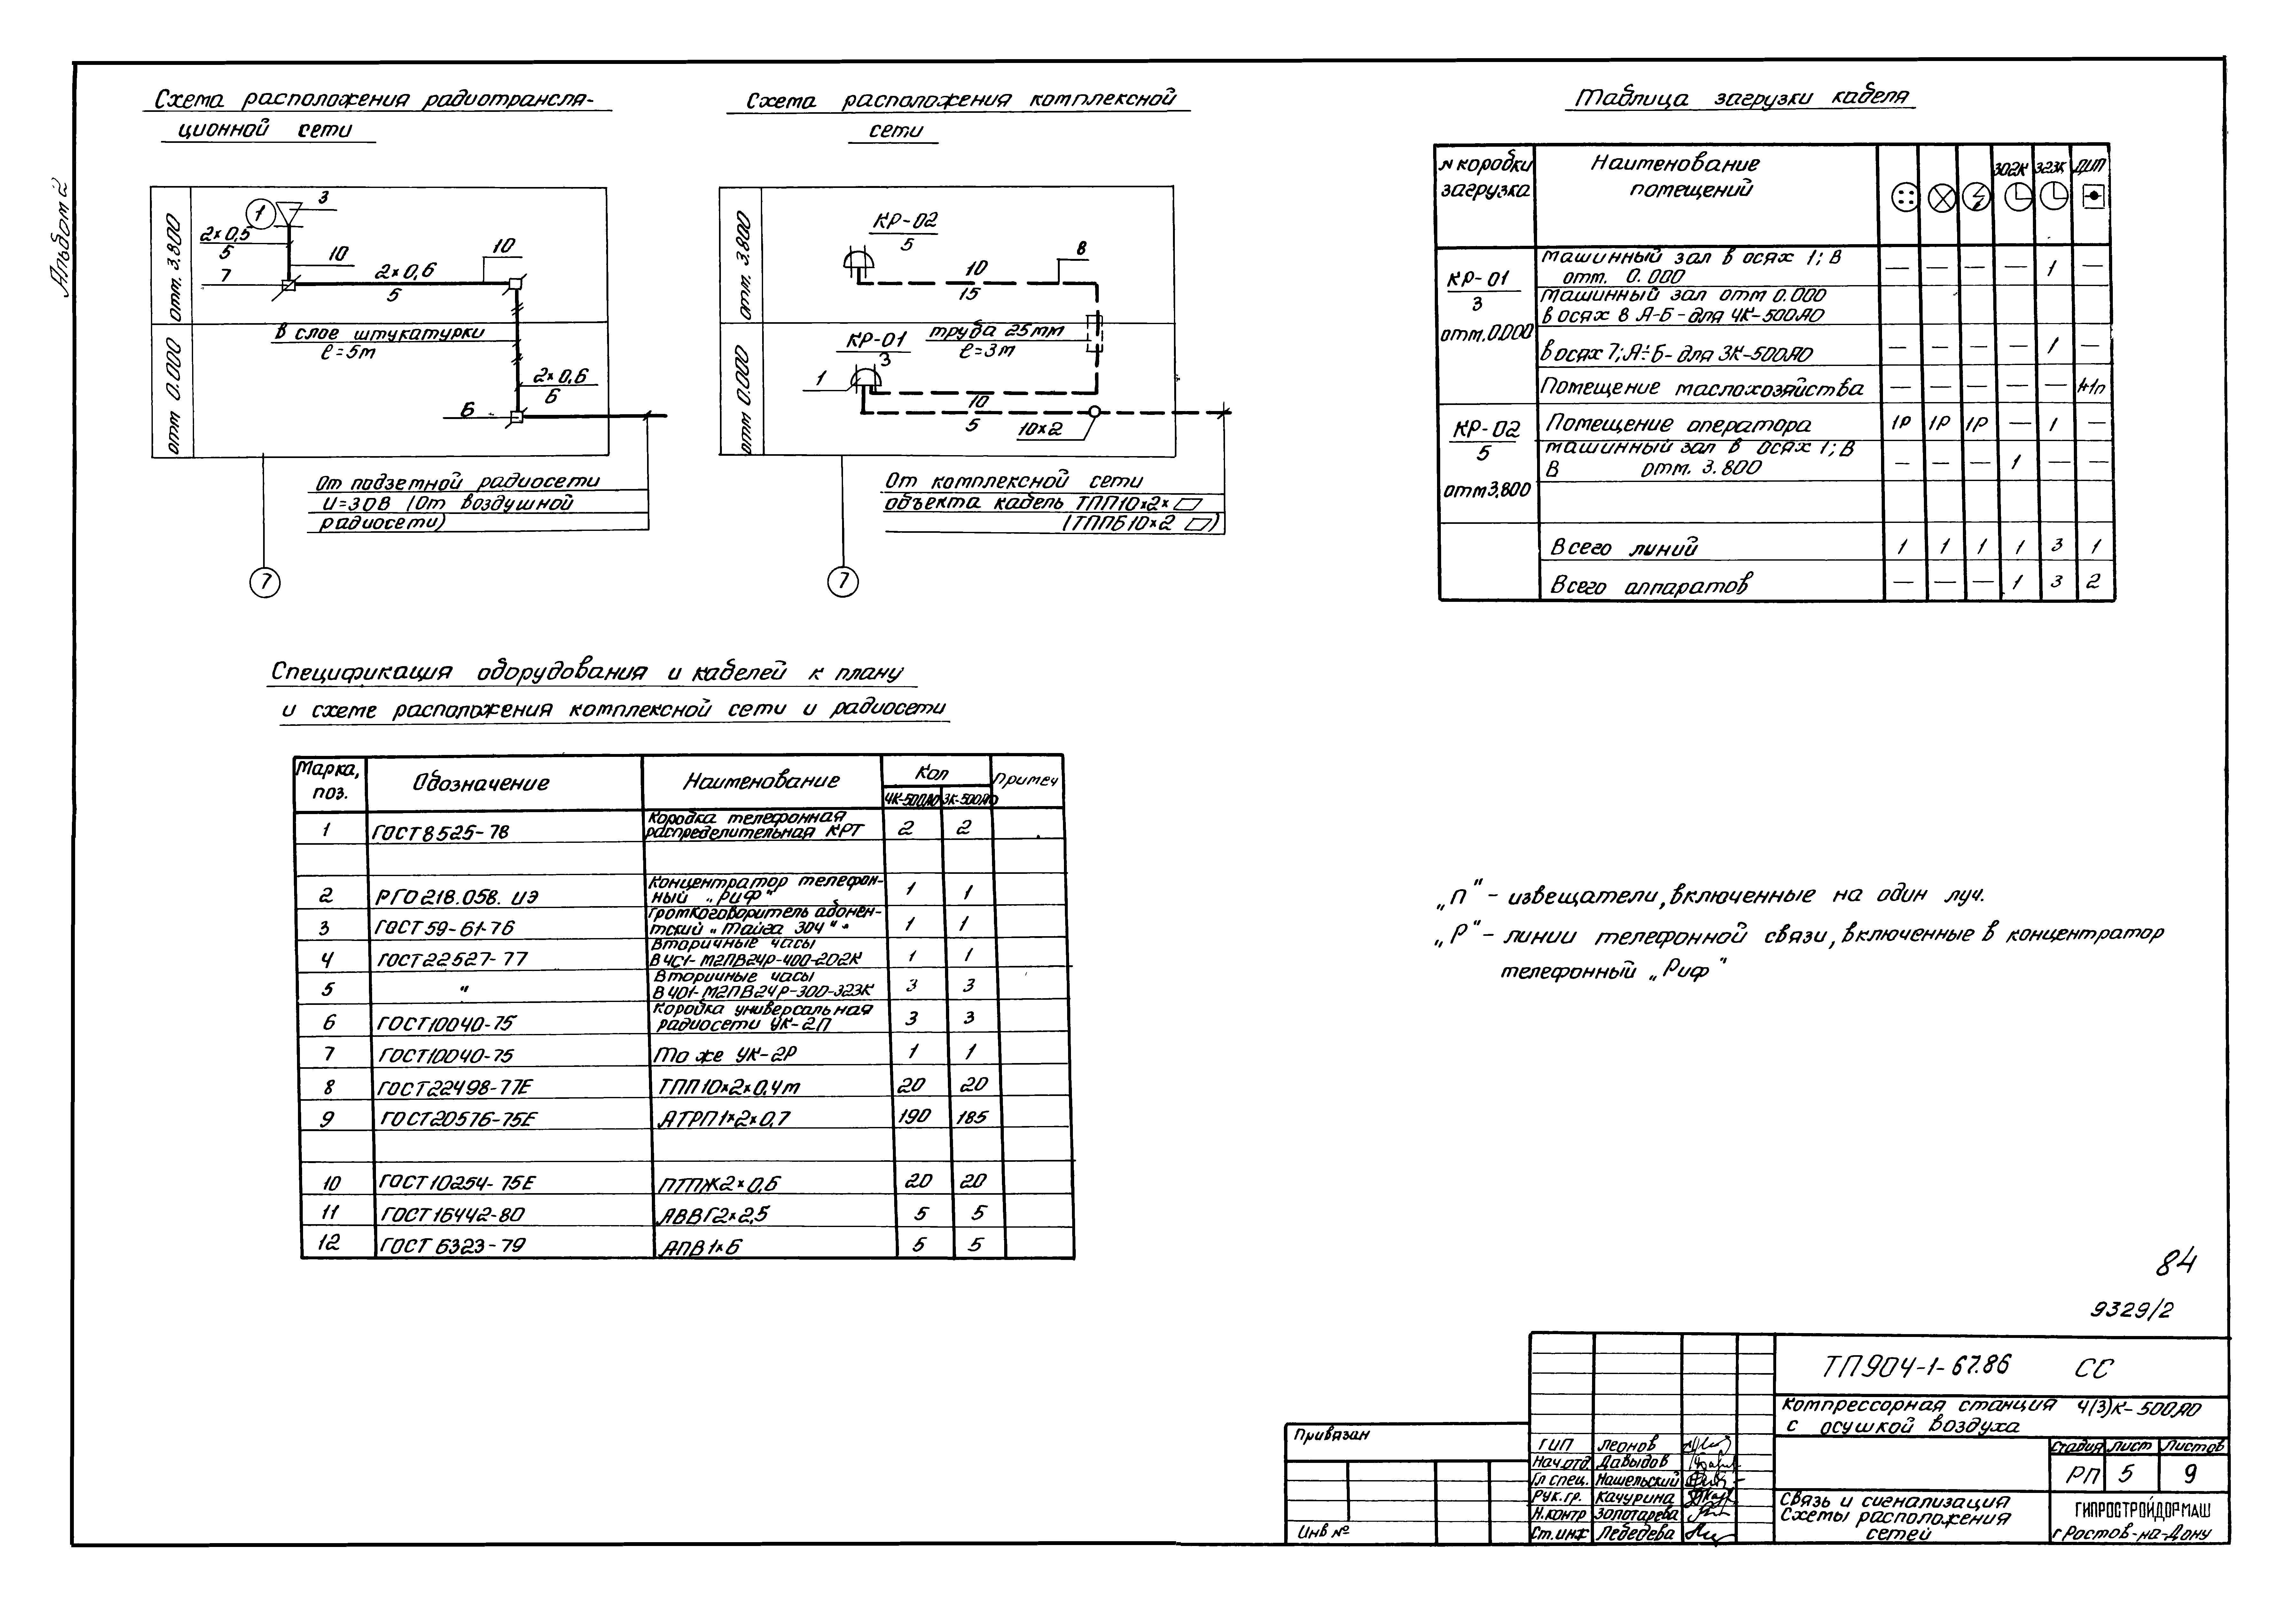 Альбом 2
Схема расположения радиотрансля-
ционной сети
отм. 3.800
отм 0.000
1
3
2×0,5
5
10
7
2×0,6
5
10
в слое штукатурки
ℓ=5м
2×0,6
6
6
От подземной радиосети
U=30В (От воздушной
радиосети)
7
Схема расположения комплексной
сети
отм. 3.800
отм 0.000
КР-02
5
10
15
8
КР-01
3
труба 25мм
ℓ=3м
1
10
5
10×2
От комплексной сети
объекта кабель ТПП10×2×
(ТППБ10×2 )
7
Таблица загрузки кабеля
N коробки загрузка | Наименование помещений | 302К | 323К | ДИП
КР-01
3
отм.0.000
машинный зал в осях 1; В
отм. 0.000 — — — — 1 —
машинный зал отм 0.000
в осях 8 А-Б - для 4К-500АО
в осях 7; А÷Б - для 3К-500АО — — — — 1 —
Помещение маслохозяйства — — — — — 1+1п
КР-02
5
отм3,800
Помещение оператора 1Р 1Р 1Р — 1 —
машинный зал в осях 1; В
В отм. 3.800 — — — 1 — —
Всего линий 1 1 1 1 3 1
Всего аппаратов — — — 1 3 2
Спецификация оборудования и кабелей к плану
и схеме расположения комплексной сети и радиосети
Марка, поз. | Обозначение | Наименование | Кол | Примеч
4К-500АО 3К-500АО
1 ГОСТ8525-78 Коробка телефонная распределительная КРТ 2 2
2 РГО218.058. ИЭ Концентратор телефон-ный „Риф“ 1 1
3 ГОСТ59-61-76 Громкоговоритель абонен-тский „Тайга 304“ 1 1
4 ГОСТ22527-77 Вторичные часы ВЧС1-М2ПВ24Р-400-202К 1 1
5 " Вторичные часы ВЧ01-М2ПВ24Р-300-323К 3 3
6 ГОСТ10040-75 Коробка универсальная радиосети УК-2П 3 3
7 ГОСТ10040-75 То же УК-2Р 1 1
8 ГОСТ22498-77Е ТПП10×2×0,4м 20 20
9 ГОСТ20576-75Е АТРП1×2×0,7 190 185
10 ГОСТ10254-75Е ПТПЖ2×0,6 20 20
11 ГОСТ16442-80 АВВГ2×2,5 5 5
12 ГОСТ 6323-79 АПВ1×6 5 5
„п“ - извещатели, включенные на один луч.
„Р“ - линии телефонной связи, включенные в концентратор
телефонный „Риф“
84
9329/2
ТП904-1-67.86 СС
Компрессорная станция 4(3)К-500АО
с осушкой воздуха
Привязан
Инв №
ГИП Леонов
Нач.отд. Давыдов
Гл спец. Нашельский
Рук.гр. Качурина
Н.контр Золотарева
Ст.инж Лебедева
Стадия Лист Листов
РП 5 9
Связь и сигнализация
Схемы расположения
сетей
ГИПРОСТРОЙДОРМАШ
г Ростов-на-Дону